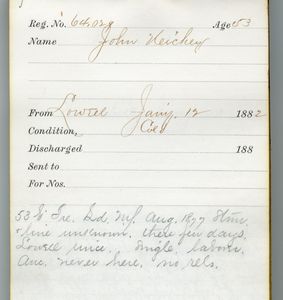 Reg. No. Age 53
Name John
From Lowell Jan'y. 12 1882
Condition, Col
Discharged 188
Sent to
For Nos.
53 Ire. Ld. N.Y. Aug. 1877
& line unknown. there few days.
Lowell since. Single, laborer.
Anc. never here. no rels.